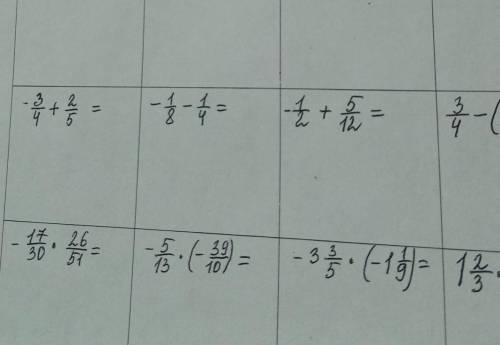 -3/4 + 2/5 =
-1/8 - 1/4 =
-1/2 + 5/12 =
3/4 - (
-17/30 · 26/51 =
-5/13 · (-39/10) =
-3 3/5 · (-1 1/9) =
1 2/3 ·